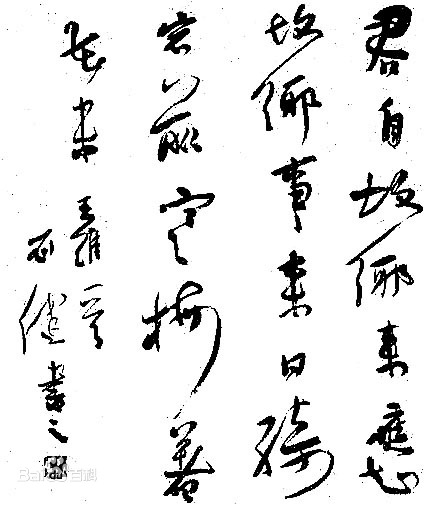 君自故鄉來應知
故鄉事來日綺
窗前寒梅著
花未 王維詩
書之
Bai百科